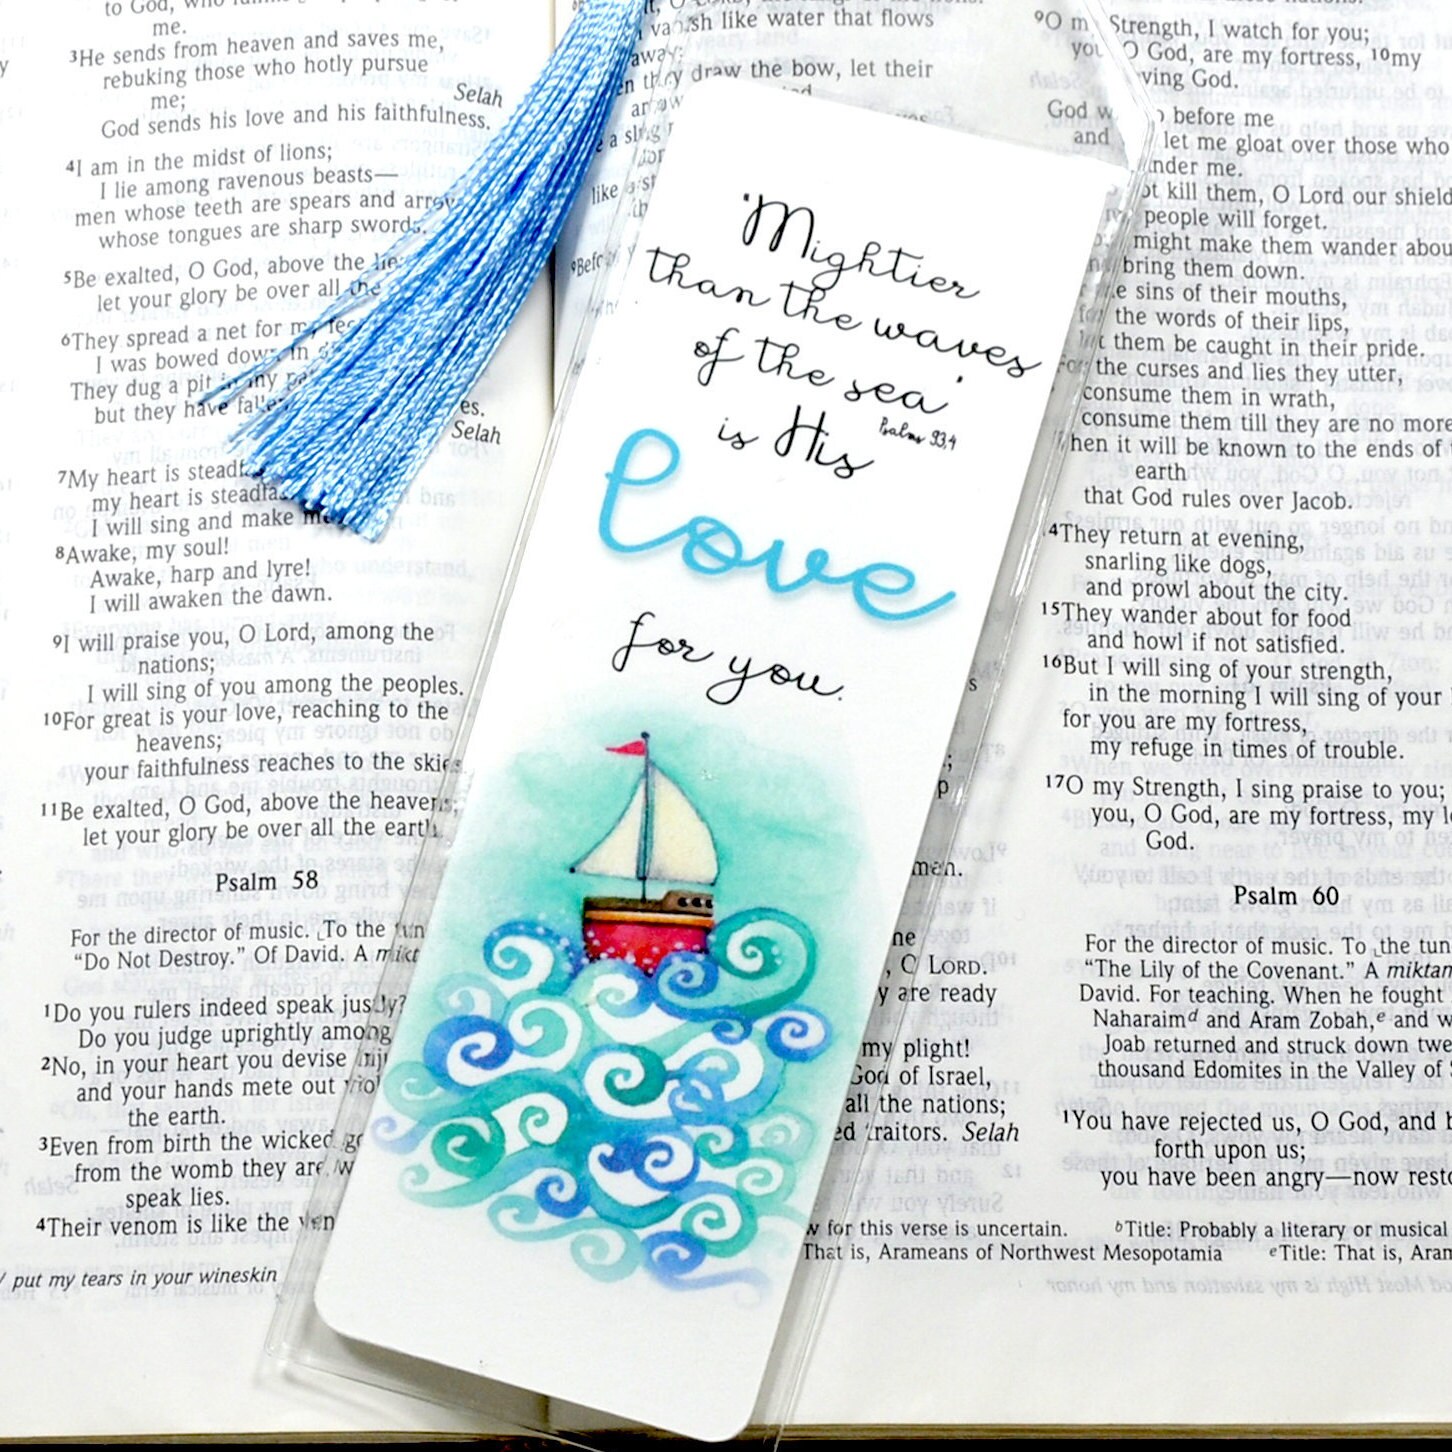 to God, who
me.
3He sends from heaven and saves me,
rebuking those who hotly pursue
me;
Selah
God sends his love and his faithfulness.
4I am in the midst of lions;
I lie among ravenous beasts—
men whose teeth are spears and arrows
whose tongues are sharp swords.
5Be exalted, O God, above the
let your glory be over all the
6They spread a net for my feet
I was bowed down in
They dug a pit in my
but they have fallen
es.
Selah
7My heart is steadf
my heart is steadfa
I will sing and make
8Awake, my soul!
Awake, harp and lyre!
I will awaken the dawn.
9I will praise you, O Lord, among the
nations;
I will sing of you among the peoples.
10For great is your love, reaching to the
heavens;
your faithfulness reaches to the skies.
11Be exalted, O God, above the heavens;
let your glory be over all the earth.
Psalm 58
For the director of music. To the tune
“Do Not Destroy.” Of David. A mikt
1Do you rulers indeed speak justly?
Do you judge uprightly among
2No, in your heart you devise inj
and your hands mete out viol
the earth.
3Even from birth the wicked go
from the womb they are w
speak lies.
4Their venom is like the ven
put my tears in your wineskin
vanish like water that flows
away;
en they draw the bow, let their
like a st
9Befo
'Mightier
than the waves
of the sea'
Psalms 93,4
is His
love
for you.
men.
, O LORD.
y are ready
my plight!
God of Israel,
all the nations;
ed traitors. Selah
w for this verse is uncertain. bTitle: Probably a literary or musical
That is, Arameans of Northwest Mesopotamia eTitle: That is, Aram
9O my Strength, I watch for you;
you, O God, are my fortress, 10my
ving God.
God w before me
and let me gloat over those who
nder me.
ot kill them, O Lord our shield
people will forget.
might make them wander abou
bring them down.
e sins of their mouths,
the words of their lips,
let them be caught in their pride.
For the curses and lies they utter,
consume them in wrath,
consume them till they are no more
hen it will be known to the ends of
earth
that God rules over Jacob.
14They return at evening,
snarling like dogs,
and prowl about the city.
15They wander about for food
and howl if not satisfied.
16But I will sing of your strength,
in the morning I will sing of your
for you are my fortress,
my refuge in times of trouble.
17O my Strength, I sing praise to you;
you, O God, are my fortress, my
God.
Psalm 60
For the director of music. To the tun
“The Lily of the Covenant.” A miktam
David. For teaching. When he fought
Naharaimd and Aram Zobah,e and w
Joab returned and struck down twe
thousand Edomites in the Valley of
1You have rejected us, O God, and b
forth upon us;
you have been angry—now resto